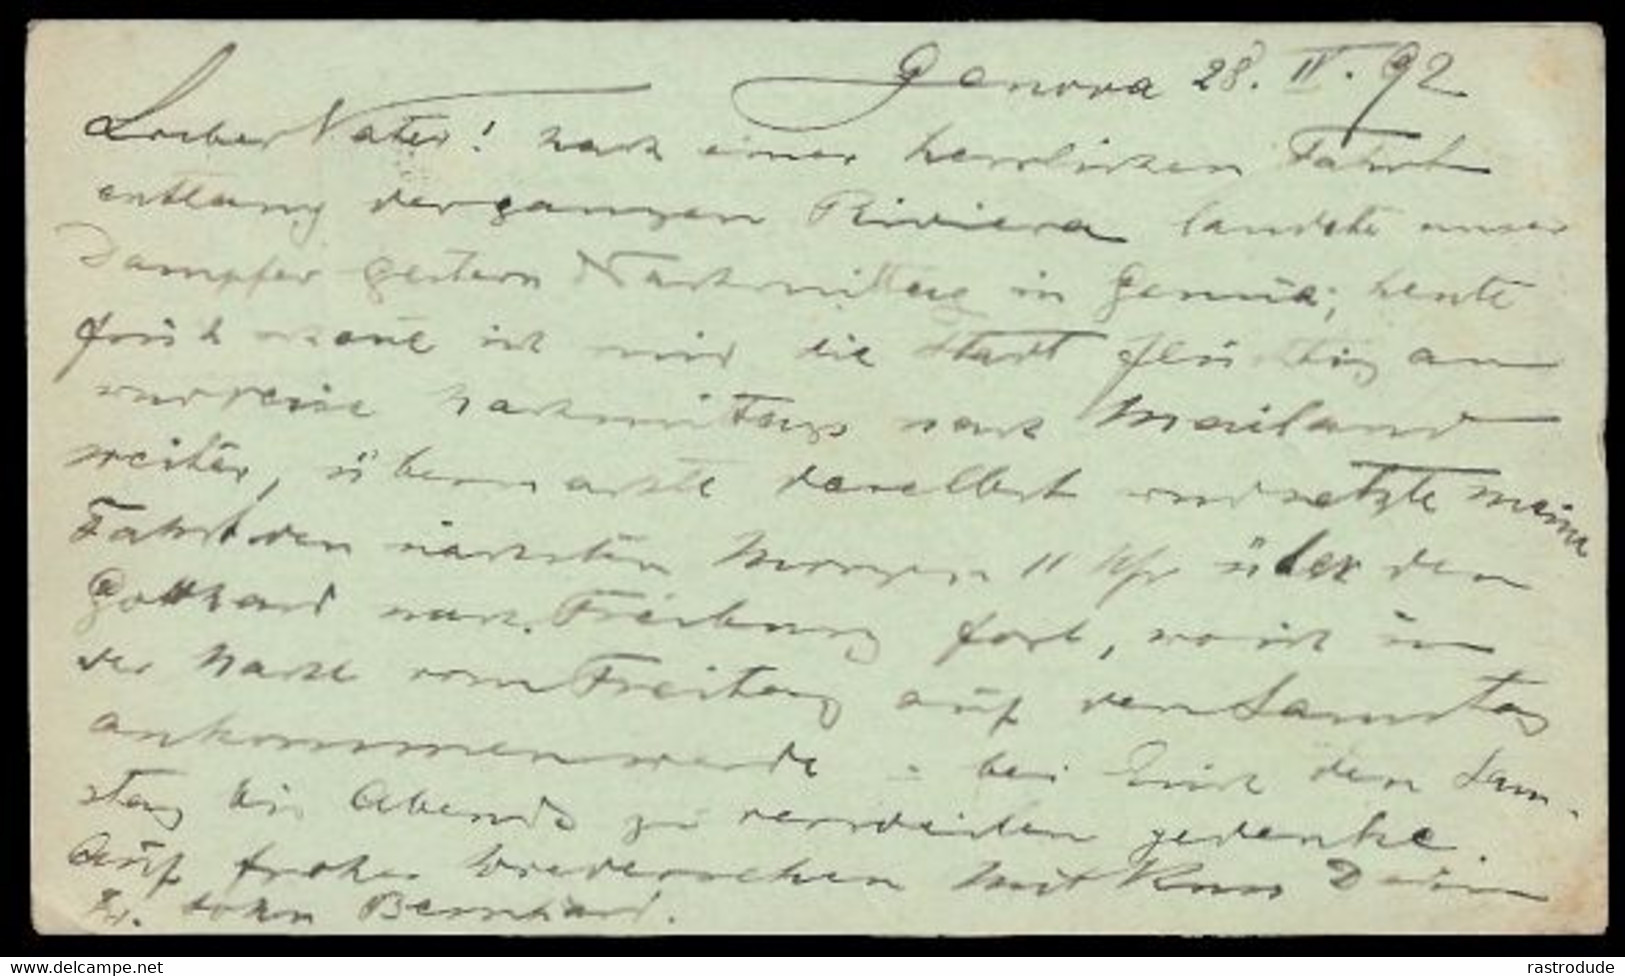 Genova 28. IV. 92
Lieber Vater! Nach einer herrlichen Fahrt
entlang der ganzen Riviera landete unser
Dampfer gestern Nachmittag in Genua; heute
früh schaue ich mir die Stadt flüchtig an
und reise Nachmittags nach Mailand
weiter, übernachte daselbst und setzte meine
Fahrt den nächsten Morgen 11 Uhr über den
Gotthard nach Freiburg fort, wo ich in
der Nacht vom Freitag auf den Samstag
ankommen werde - bei Euch den Sam-
stag bis Abends zu verweilen gedenke.
Auf frohes Wiedersehen mit Kuss Dein
tr. Sohn Bernhard.
delcampe.net
rastrodude